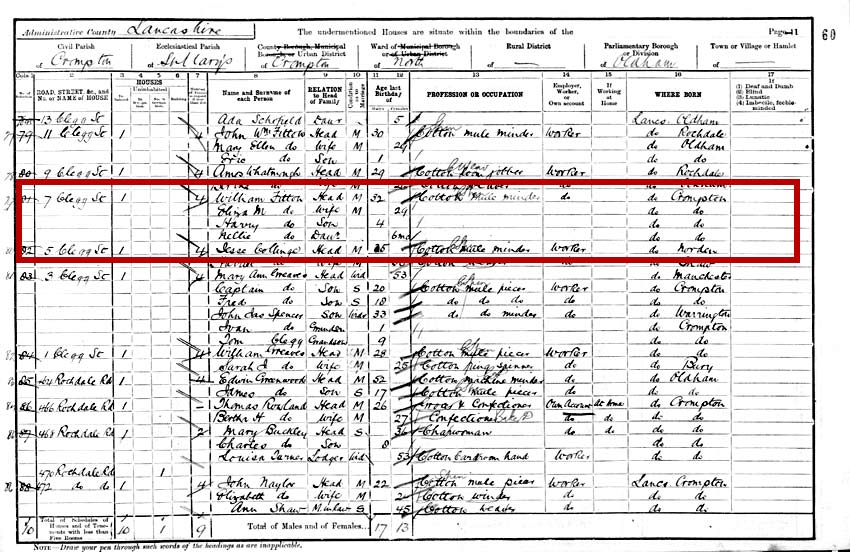 Administrative County Lancashire The undermentioned Houses are situate within the boundaries of the Page 11 60
Civil Parish Ecclesiastical Parish County Borough, Municipal Borough, or Urban District Ward of Municipal Borough or of Urban District Rural District Parliamentary Borough or Division Town or Village or Hamlet
of Crompton of St Mary's of Crompton of North of — of Oldham of —
1 2 3 4 5 6 7 8 9 10 11 12 13 14 15 16 17
ROAD, STREET, &c., and No. or NAME of HOUSE HOUSES Name and Surname of each Person RELATION to Head of Family Age last Birthday of PROFESSION OR OCCUPATION Employer, Worker, or Own account If Working at Home WHERE BORN (1) Deaf and Dumb (2) Blind (3) Lunatic (4) Imbecile, feeble-minded
13 Clegg St Ada Schofield Daur 5 Lancs. Oldham
79 11 Clegg St 1 4 John Wm Fitton Head M 30 Cotton mule minder Worker do Rochdale
Mary Ellen do Wife M 29 do Oldham
Eric do Son 1 do do
80 9 Clegg St 1 4 Amos Head M 29 Cotton Worker do Rochdale
81 7 Clegg St 1 4 William Fitton Head M 32 Cotton Mule minder do do Crompton
Eliza M. do Wife M 29 do do
Harry do Son 4 do do
Nellie do Daur 6mo do do
82 5 Clegg St 1 4 Jesse Collinge Head M 25 Cotton mule minder Worker do Norden
83 3 Clegg St 1 4 Mary Ann Greaves Head Wid 53 do Manchester
Captain do Son S 20 Cotton mule piecer Worker do Crompton
Fred do Son S 18 do do do do do do
John Jas Spencer Son 33 do do minder do do Warrington
Ivan do Grandson 1 do Crompton
Tom Clegg Grandson 9 do do
84 1 Clegg St 1 4 William Greaves Head M 28 Cotton mule piecer Worker do do
Sarah J do Wife M 25 Cotton ring spinner do do Bury
85 464 Rochdale Rd 1 4 Edwin Greenwood Head M 52 Cotton machine minder do do Oldham
James do Son S 17 Cotton mule piecer do do do
86 466 Rochdale Rd 1 – Thomas Rowland Head M 26 Grocer & Confectioner Own Account At home do Crompton
Bertha H do Wife M 27 Confectioner do do do do
87 468 Rochdale Rd 1 2 Mary Buckley Head S 36 Charwoman do do do do
Charles do Son 8 do do
Louisa Turner Lodger Wid 53 Cotton Cardroom hand Worker do do
470 Rochdale Rd 1
88 472 do do 1 4 John Naylor Head M 22 Cotton mule piecer Worker Lancs. Crompton
Elizabeth do Wife M 2 Cotton winder do do do
Ann Shaw M in law 45 Cotton do do do
10 Total of Schedules of Houses and of Tenements with less than Five Rooms 10 1 9 Total of Males and of Females... 17 13
NOTE—Draw your pen through such words of the headings as are inapplicable.